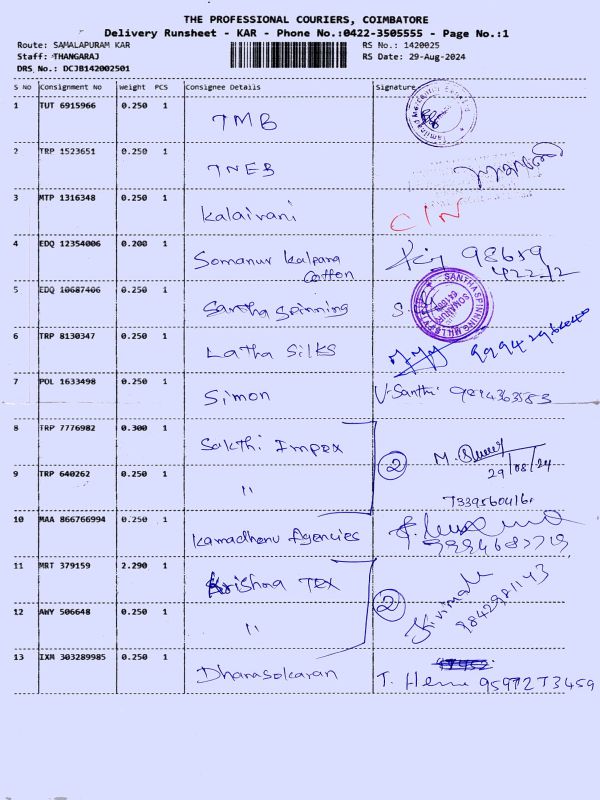 THE PROFESSIONAL COURIERS, COIMBATORE
Delivery Runsheet - KAR - Phone No.:0422-3505555 - Page No.:1
Route: SAMALAPURAM KAR RS No.: 1420025
Staff: THANGARAJ RS Date: 29-Aug-2024
DRS No.: DCJB142002501
S No Consignment No Weight PCS Consignee Details Signature
1 TUT 6915966 0.250 1 TMB
2 TRP 1523651 0.250 1 TNEB
3 MTP 1316348 0.250 1 Kalaivani C/N
4 EDQ 12354006 0.200 1 Somanur Kalpana Cotton 98659 42212
5 EDQ 10687406 0.250 1 Santha Spinning
6 TRP 8130347 0.250 1 Latha Silks
7 POL 1633498 0.250 1 Simon V. Santhi
8 TRP 7776982 0.300 1 Sakthi Impex M. 29/08/24
9 TRP 640262 0.250 1 " 2
10 MAA 866766994 0.250 1 Kamadhenu Agencies
11 MRT 379159 2.290 1 Krishna Tex
12 AWY 506648 0.250 1 " 2
13 IXM 303289985 0.250 1 Dhanasekaran T. Hema 9597273459